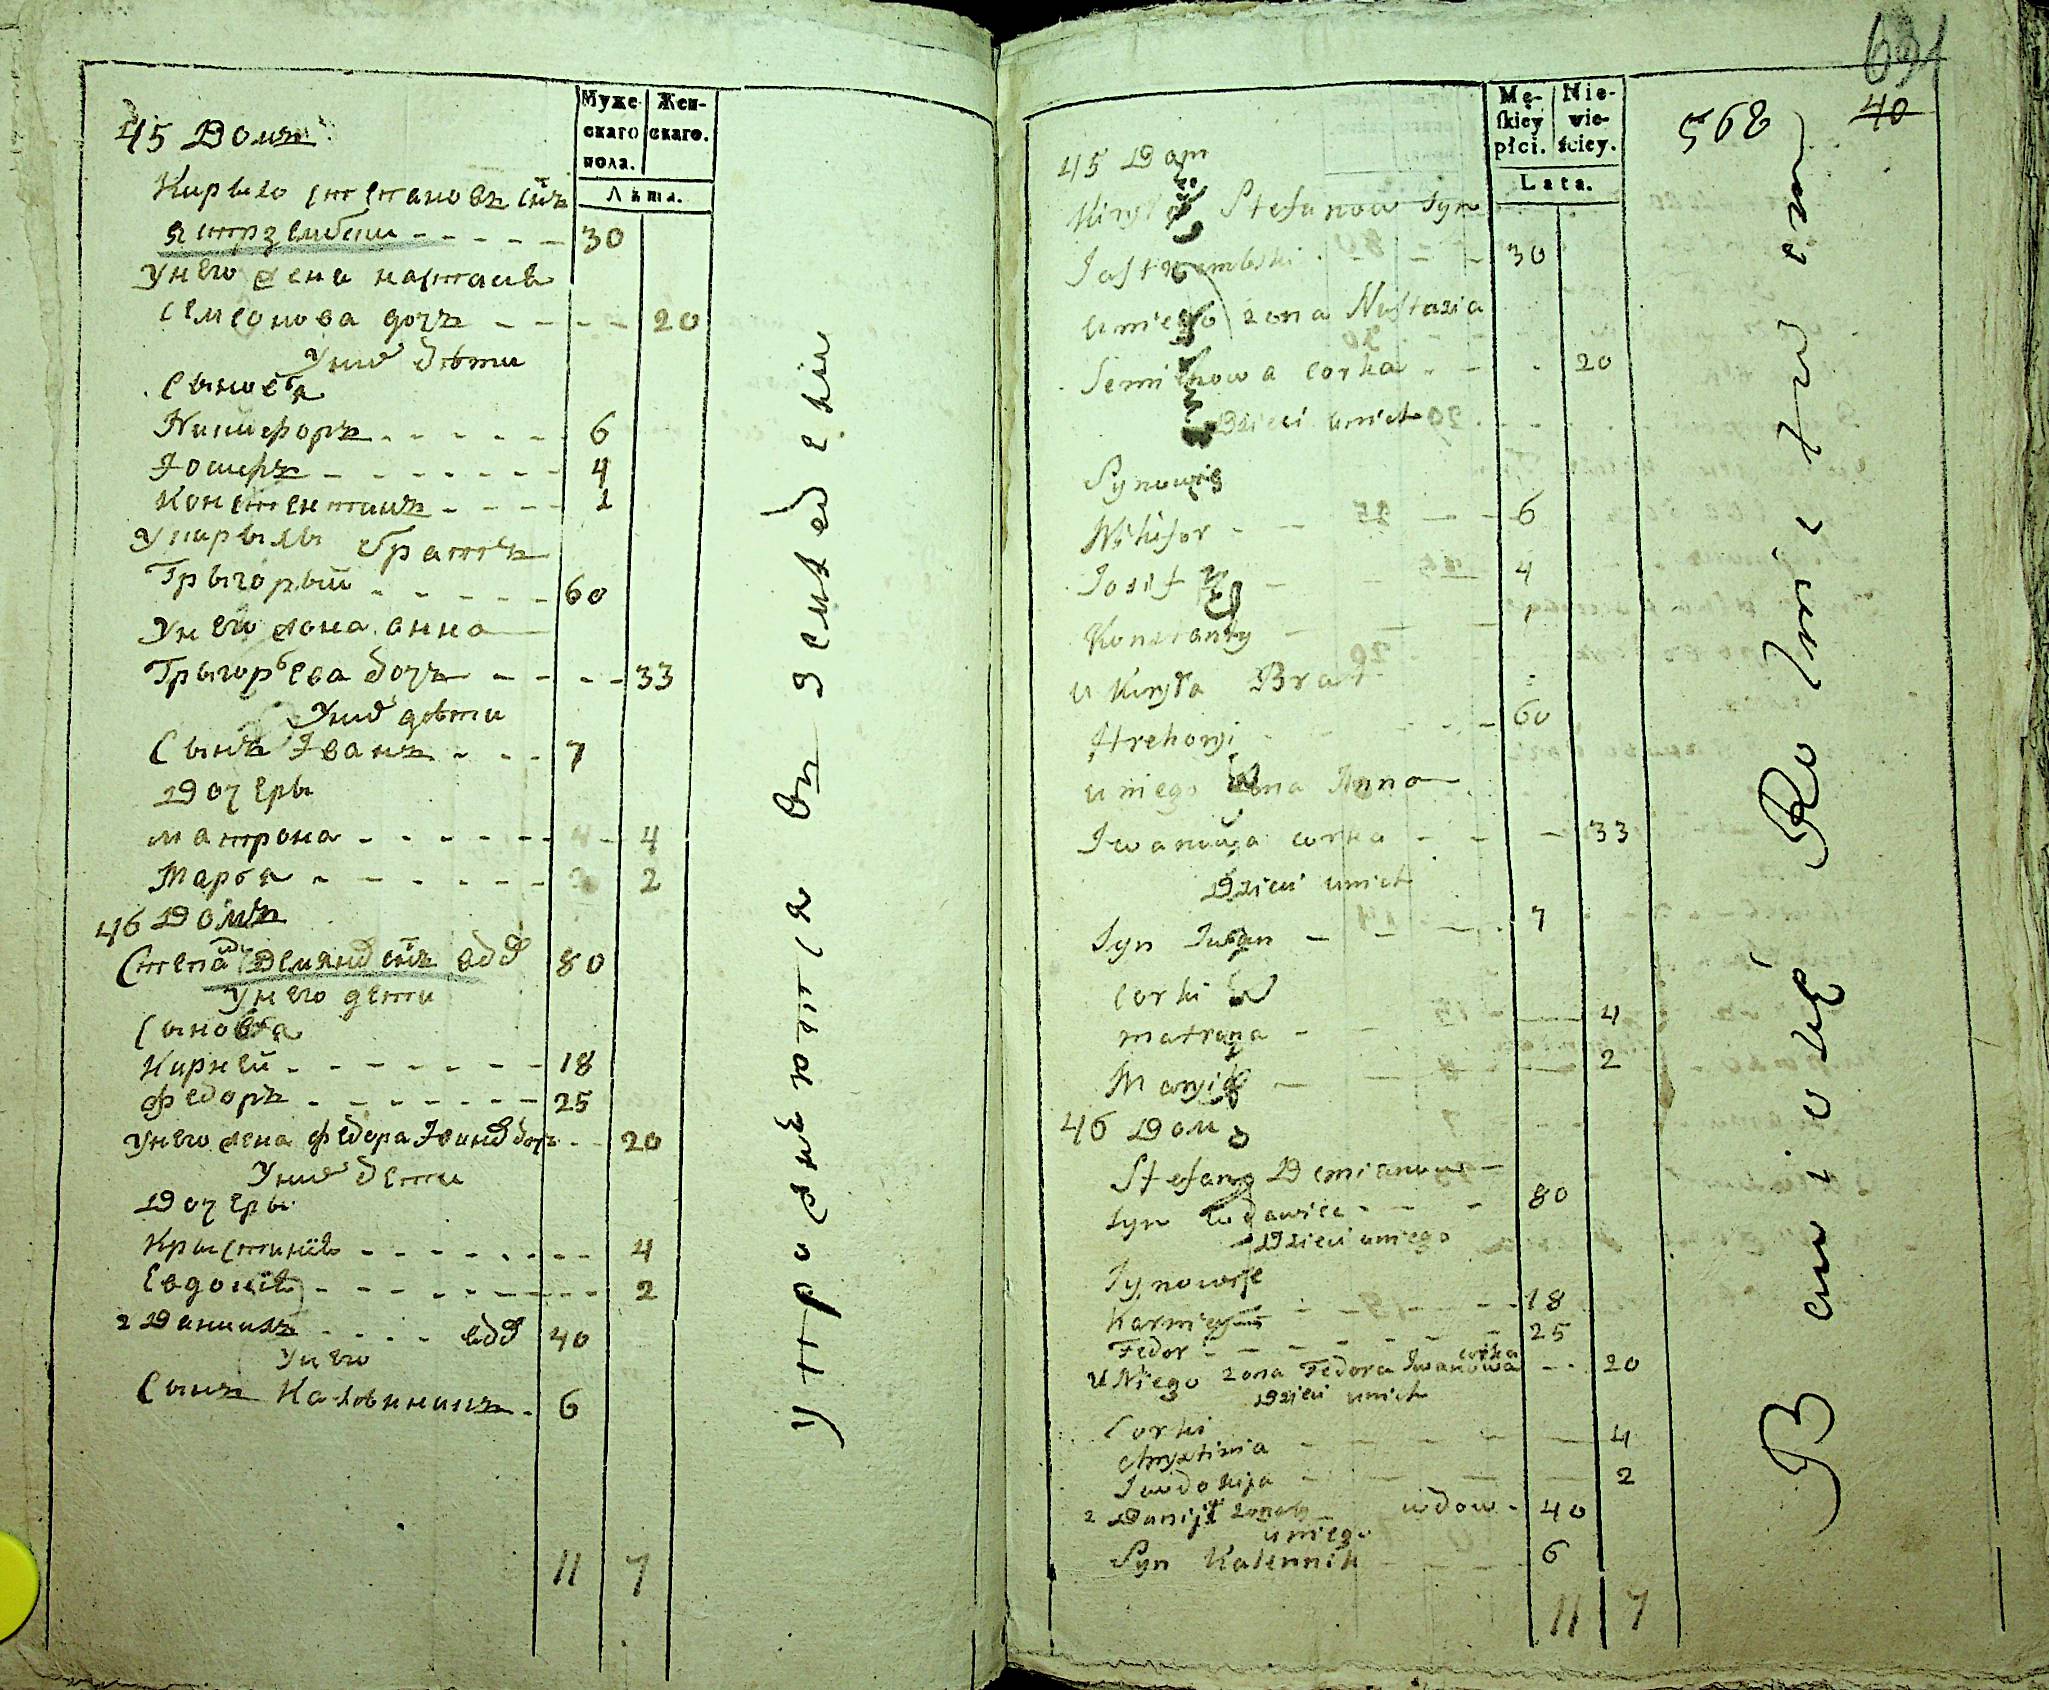 Муже-
скаго
пола.
Жен-
скаго.
Лѣта.
45 Домъ
Кирыло Степановъ снъ
Ястрзембски - - - - - 30
У него жена настасія
Семеонова дочъ - - - - 20
У них дѣти
Сыновя
Никифоръ - - - - - 6
Іосифъ - - - - - - 4
Констентинъ - - - - 1
У кирылы братъ
Грыгорый - - - - - 60
У него жона анна
Грыгорьева дочъ - - - - 33
У них дѣти
Сынъ Іванъ - - - 7
Дочеры
матрона - - - - - - - 4
Марья - - - - - - - 2
46 Домъ
Степан Демянов снъ вдов 80
У него дети
Сыновя
Карней - - - - - - - 18
Федоръ - - - - - - - 25
У него жена федора Іванов дочъ - - 20
У них дети
Дочеры
Крыстинія - - - - - - - - 4
Евдокія - - - - - - - - 2
2 Данилъ - - - - вдов 40
У него
Сынъ Калѣникъ - 6
11 7
упражняются въ земледеліи
Mę-
skiey
płci.
Nie-
wie-
ściey.
Lata.
631
568
40
45 Dom
Kiryło Stefanow Syn
Jastrzembski - - - 30
u niego zona Nastazia
Semienowa corka - - - 20
Dzieci unich
Synowie
Nikifor - - - - 6
Iosif - - - 4
Konstanty - - - 1
u Kiryła Brat
Hrehory - - - - 60
u niego zona Anna
Iwanowa corka - - - 33
Dzieci unich
Syn Iwan - - - - 7
Corki
matrona - - - 4
Maryia - - - 2
46 Dom
Stefan Demianow
Syn wdowiec - - - 80
Dzieci uniego
Synowie
Karniey - - - - 18
Fedor - - - - - - 25
corka
u Niego zona Fedora Iwanowa - - 20
Dzieci unich
Corki
Chrystinia - - - - - 4
Iewdokija - - - - 2
2 Daniił wdow - 40
uniego
Syn Kalennik - - - 6
11 7
Bawią się Rolnictwem